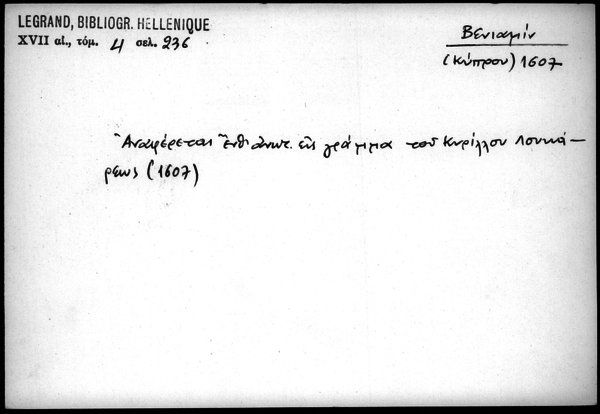 LEGRAND, BIBLIOGR. HELLENIQUE
XVII αἰ., τόμ. 4 σελ. 236
Βενιαμίν
(Κύπρου) 1607
Ἀναφέρεται εἰς γράμμα τοῦ Κυρίλλου Λουκά-
ρεως (1607)